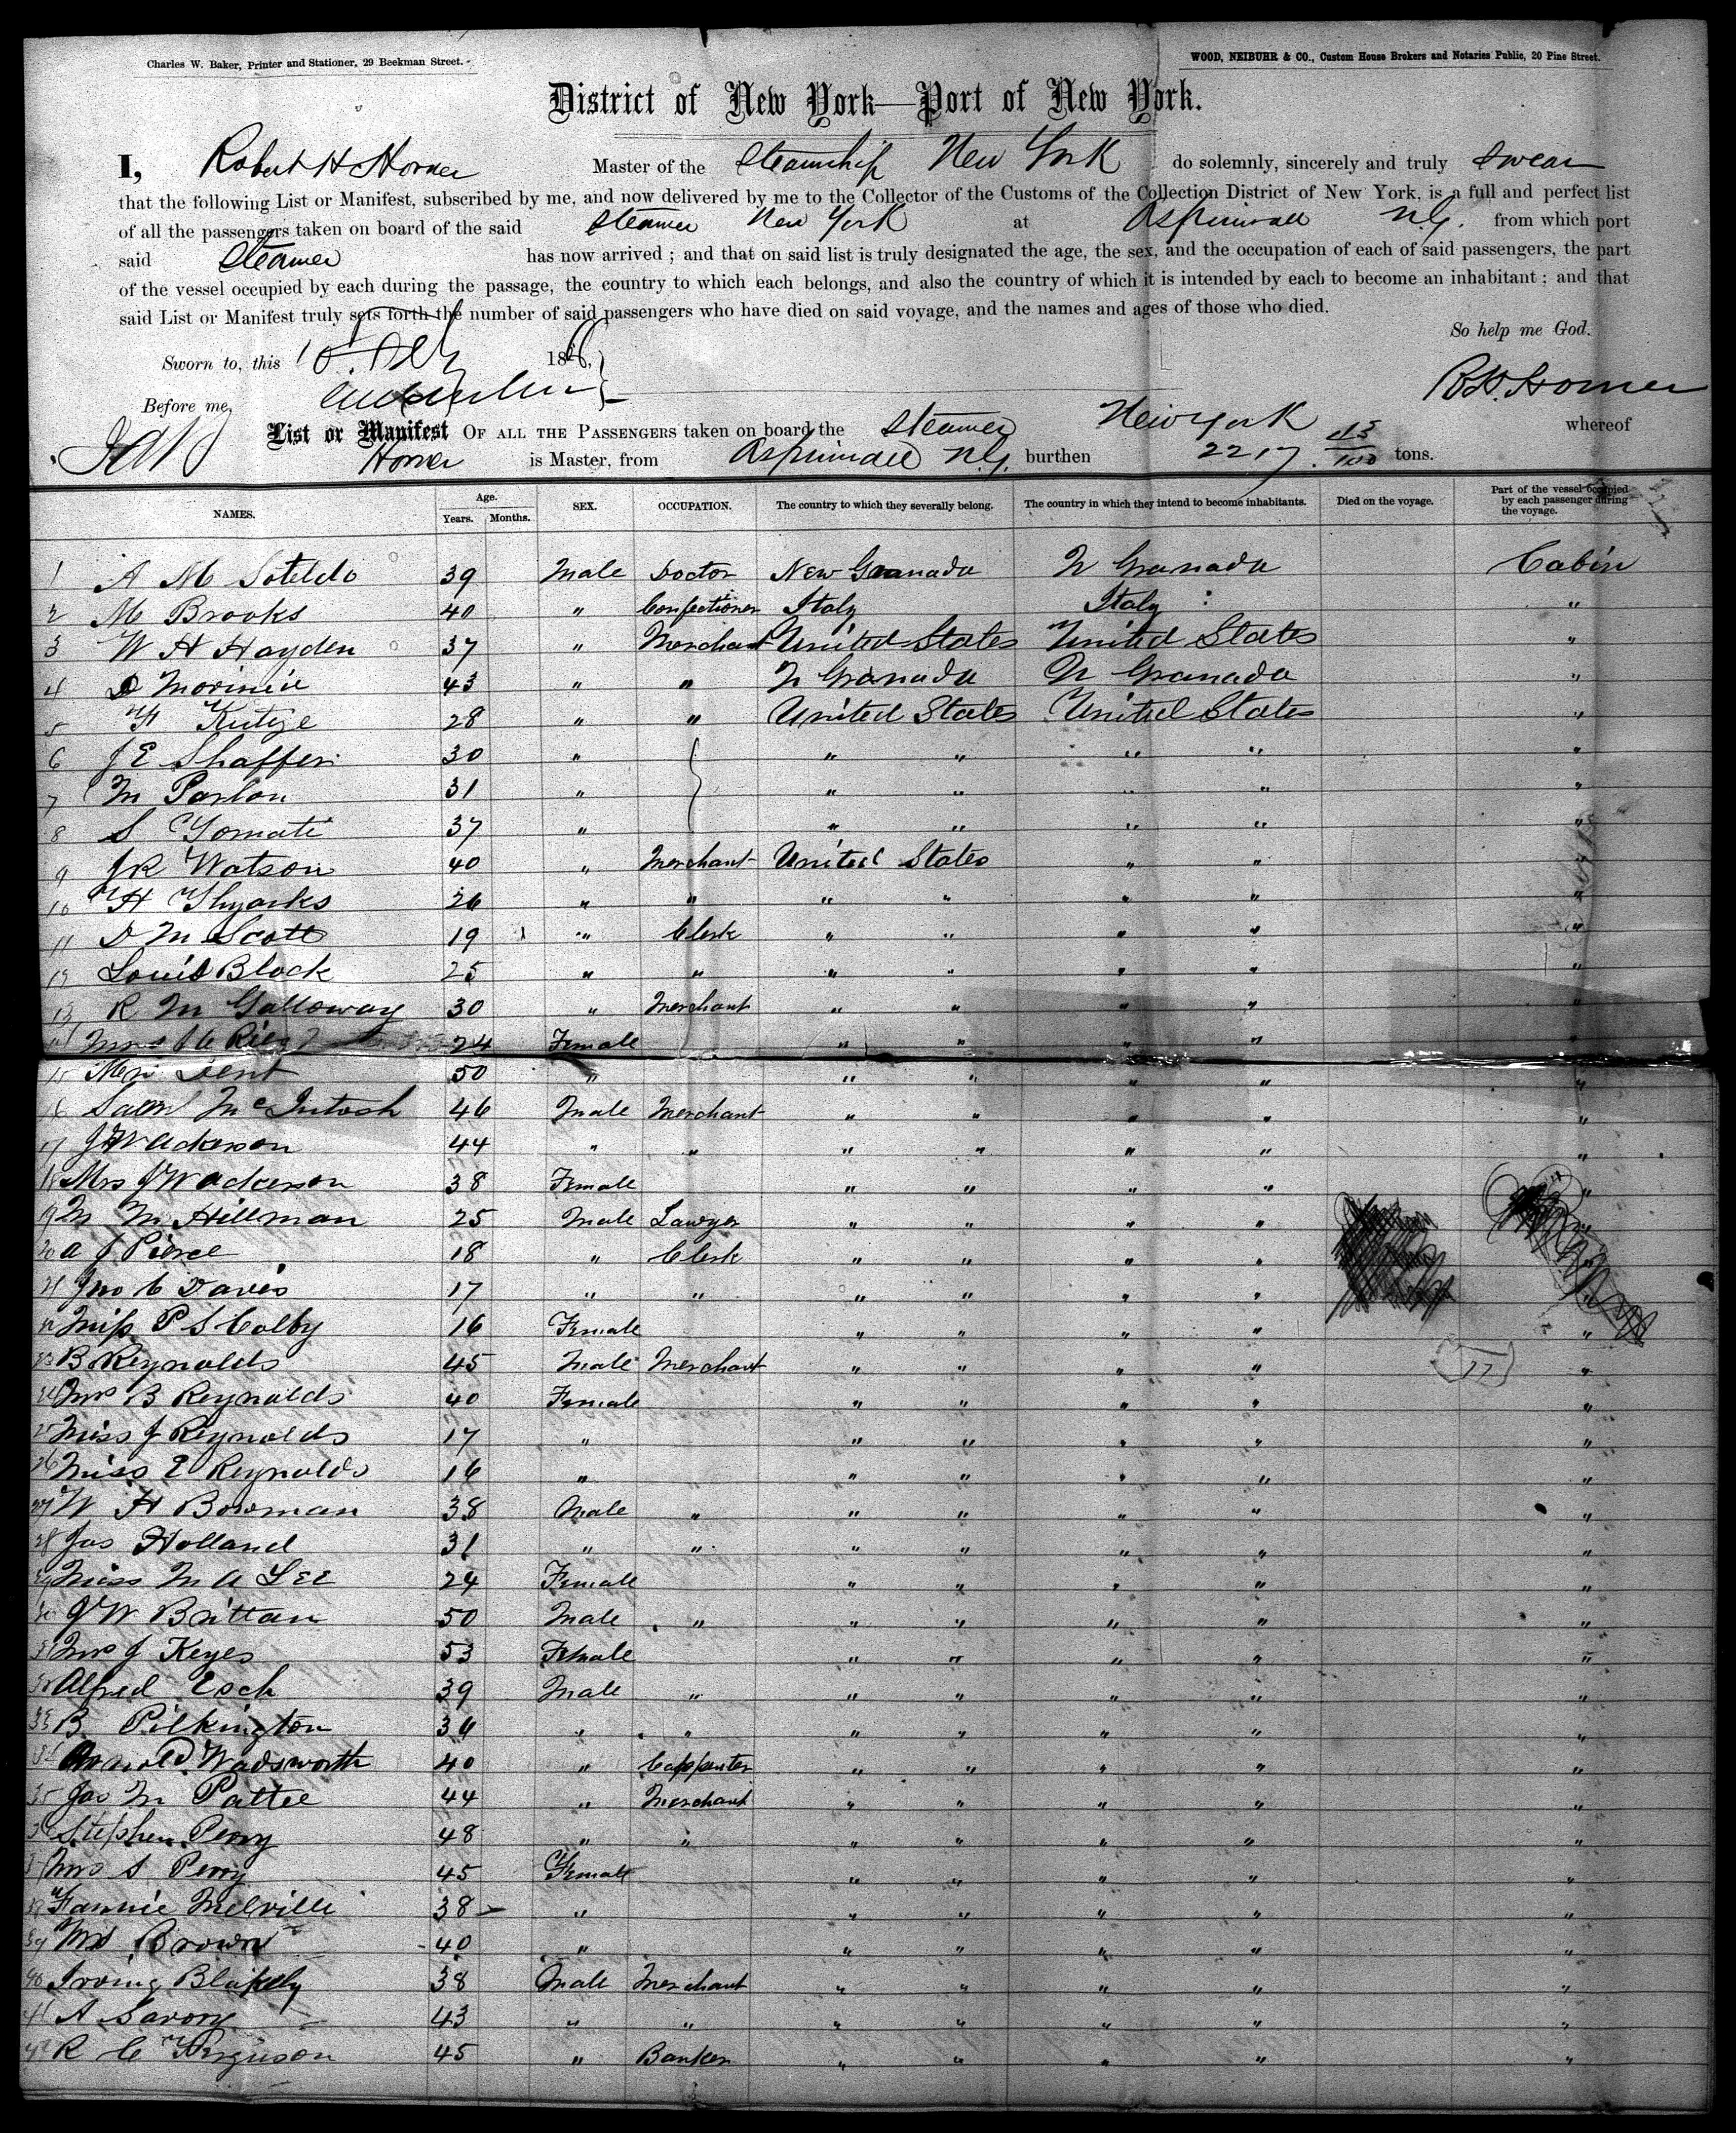 Charles W. Baker, Printer and Stationer, 29 Beekman Street.
WOOD, NEIBUHR & CO., Custom House Brokers and Notaries Public, 20 Pine Street.
District of New York—Port of New York.
I, Robert H Horner Master of the Steamship New York do solemnly, sincerely and truly swear
that the following List or Manifest, subscribed by me, and now delivered by me to the Collector of the Customs of the Collection District of New York, is a full and perfect list
of all the passengers taken on board of the said Steamer New York at Aspinwall N.G. from which port
said Steamer has now arrived ; and that on said list is truly designated the age, the sex, and the occupation of each of said passengers, the part
of the vessel occupied by each during the passage, the country to which each belongs, and also the country of which it is intended by each to become an inhabitant ; and that
said List or Manifest truly sets forth the number of said passengers who have died on said voyage, and the names and ages of those who died.
So help me God.
Sworn to, this 186
R.H. Horner
Before me,
List or Manifest OF ALL THE PASSENGERS taken on board the Steamer New York whereof
Horner is Master, from Aspinwall N.G. burthen 2217 43/100 tons.
NAMES. Age. Years. Months. SEX. OCCUPATION. The country to which they severally belong. The country in which they intend to become inhabitants. Died on the voyage. Part of the vessel occupied by each passenger during the voyage.
1 A M Soteldo 39 Male Doctor New Granada N Granada Cabin
2 M Brooks 40 " Confectioner Italy Italy "
3 W H Hayden 37 " Merchant United States United States "
4 43 " " N Granada N Granada "
5 28 " " United States United States "
6 J E Shaffer 30 " " " " " "
7 M 31 " " " " " "
8 S 37 " " " " " "
9 J R Watson 40 " Merchant United States " " "
10 26 " " " " " " "
11 D M Scott 19 " Clerk " " " " "
12 Louis Block 25 " " " " " " "
13 R M Galloway 30 " Merchant " " " " "
14 Mrs 24 Female " " " " "
15 50 " " " " " "
16 Saml McIntosh 46 Male Merchant " " " " "
17 J W Ackerson 44 " " " " " " "
18 Mrs J W Ackerson 38 Female " " " " "
19 M Hillman 25 Male Lawyer " " " " "
20 A J Pierce 18 " Clerk " " " " "
21 Jno C Davis 17 " " " " " " "
22 Miss P S Colby 16 Female " " " " "
23 B Reynolds 45 Male Merchant " " " " "
24 Mrs B Reynolds 40 Female " " " " "
25 Miss J Reynolds 17 " " " " " "
26 Miss E Reynolds 16 " " " " " "
27 W H Bowman 38 Male " " " " " "
28 Jas Holland 31 " " " " " " "
29 Miss M A Lee 24 Female " " " " "
30 J W Brittan 50 Male " " " " " "
31 Mrs J Keyes 53 Female " " " " "
32 Alfred Esch 39 Male " " " " " "
33 B Pilkington " " " " " " "
34 Wadsworth 40 " Carppenter " " " " "
35 Jas M Pattee 44 " Merchant " " " " "
36 Stephen Perry 48 " " " " " " "
37 Mrs S Perry 45 Female " " " " "
38 Fannie Melville 38 " " " " " "
39 Mrs Brown 40 " " " " " "
40 Irving Blakely 38 Male Merchant " " " " "
41 A Savory 43 " " " " " " "
42 R C Ferguson 45 " Banker " " " " "